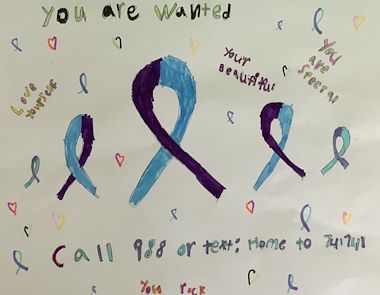 You are Wanted
Your
Beautiful
You
are
Special
Love
Yourself
Call 988 or text: Home to 741741
You rock